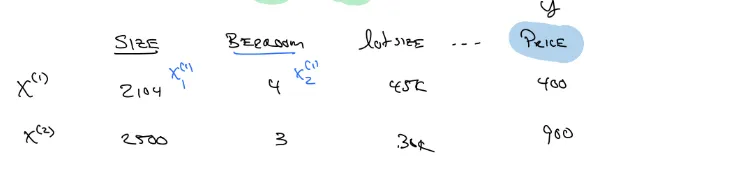 y
SIZE BEDROOM lot SIZE ... PRICE
x^(1) 2104 x_1^(1) 4 x_2^(1) 45k 400
x^(2) 2500 3 30k 900